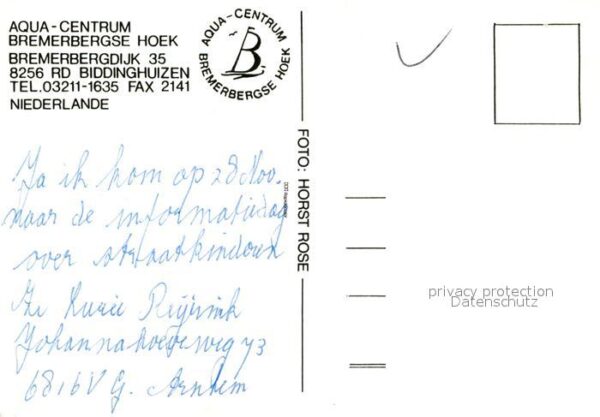 AQUA-CENTRUM
BREMERBERGSE HOEK
BREMERBERGDIJK 35
8256 RD BIDDINGHUIZEN
TEL.03211-1635 FAX 2141
NIEDERLANDE
AQUA-CENTRUM
BREMERBERGSE HOEK
FOTO: HORST ROSE
Ja ik kom op 28 Nov.
naar de informatiedag
over straatkinderen
Johannahoeveweg 73
6816VG. Arnhem
privacy protection
Datenschutz